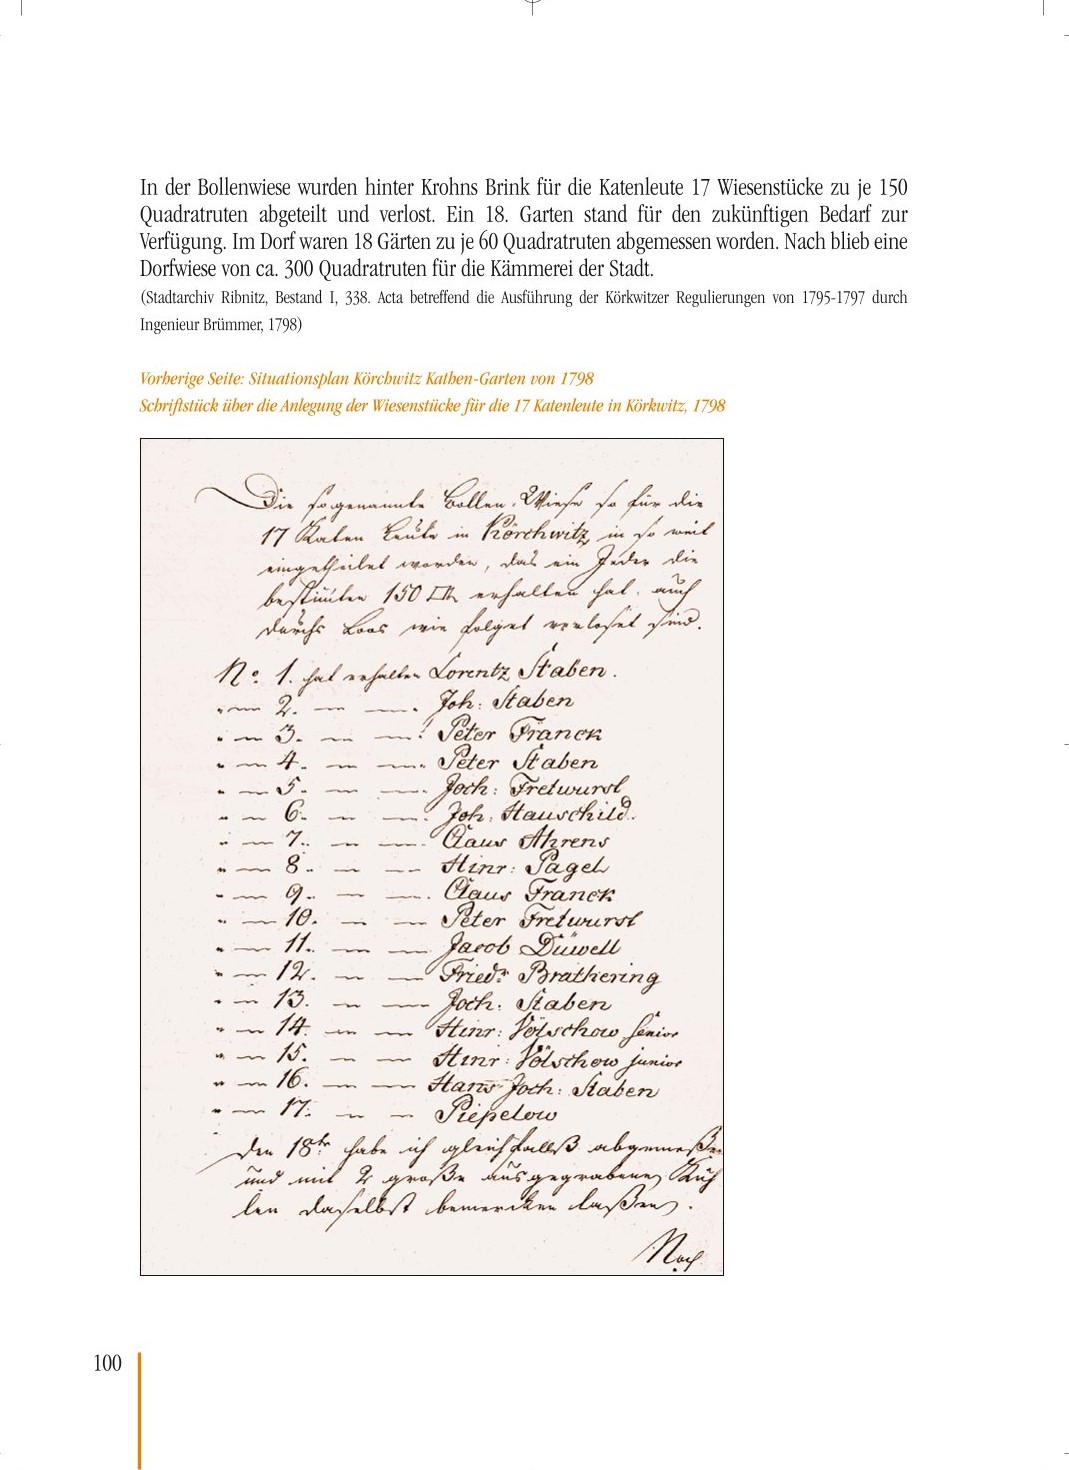 In der Bollenwiese wurden hinter Krohns Brink für die Katenleute 17 Wiesenstücke zu je 150
Quadratruten abgeteilt und verlost. Ein 18. Garten stand für den zukünftigen Bedarf zur
Verfügung. Im Dorf waren 18 Gärten zu je 60 Quadratruten abgemessen worden. Nach blieb eine
Dorfwiese von ca. 300 Quadratruten für die Kämmerei der Stadt.
(Stadtarchiv Ribnitz, Bestand I, 338. Acta betreffend die Ausführung der Körkwitzer Regulierungen von 1795-1797 durch
Ingenieur Brümmer, 1798)
Vorherige Seite: Situationsplan Körchwitz Kathen-Garten von 1798
Schriftstück über die Anlegung der Wiesenstücke für die 17 Katenleute in Körkwitz, 1798
Die sogenannte Bollen-Wiese so für die
17 Katen Leute in Körchwitz, in so weit
eingetheilet worden, das ein Jeder die
bestimten 150 □R erhalten hat, auch
durchs Loos wie folget verloset sind.
No. 1. hat erhalten Lorentz Staben.
" — 2. — — Joh: Staben
" — 3. — — Peter Franck
" — 4. — — Peter Staben
" — 5. — — Joch: Fretwurst
" — 6. — — Joh: Hauschild.
" — 7. — — Claus Ahrens
" — 8. — — Hinr: Pagel
" — 9. — — Claus Franck
" — 10. — — Peter Fretwurst
" — 11. — — Jacob Düwell
" — 12. — — Friedr Brathering
" — 13. — — Joch: Staben
" — 14. — — Hinr: Völschow senior
" — 15. — — Hinr: Völschow junior
" — 16. — — Hans Joch: Staben
" — 17. — — Piepelow
Den 18te habe ich gleichfallß abgemeßen
und mit 2 große ausgegrabene Kuh
len daselbst bemercken laßen.
Noch